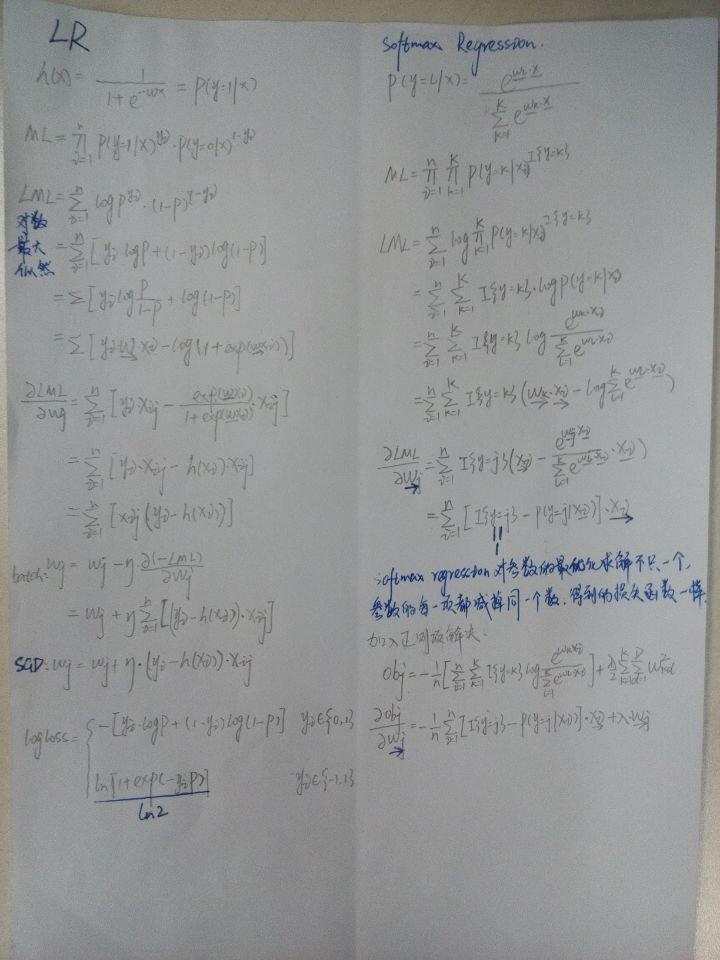 LR
h(x) = 1 / (1 + e^{-wx}) = P(y=1|x)
ML = ∏_{i=1}^{n} P(y=1|x)^{y_i} · P(y=0|x)^{1-y_i}
LML = ∑_{i=1}^{n} log P^{y_i} · (1-P)^{1-y_i}
对数
最大
似然
= ∑_{i=1}^{n} [y_i · log P + (1-y_i) log(1-P)]
= ∑ [y_i log P/(1-P) + log(1-P)]
= ∑ [y_i · w · x_i - log(1 + exp(w x_i))]
∂LML/∂w_j = ∑_{i=1}^{n} [y_i · x_{ij} - exp(w x_i)/(1+exp(w x_i)) · x_{ij}]
= ∑_{i=1}^{n} [y_i · x_{ij} - h(x_i) · x_{ij}]
= ∑_{i=1}^{n} [x_{ij} (y_i - h(x_i))]
batch: w_j = w_j - η · ∂(-LML)/∂w_j
= w_j + η ∑_{i=1}^{n} [(y_i - h(x_i)) · x_{ij}]
SGD: w_j = w_j + η · (y_i - h(x_i)) · x_{ij}
logloss = { -[y_i · log P + (1-y_i) log(1-P)] y_i ∈ {0,1}
ln[1 + exp(-y_i P)] / ln2 y_i ∈ {-1,1}
Softmax Regression.
P(y=L|x) = e^{w_L · x} / ∑_{k=1}^{K} e^{w_k · x}
ML = ∏_{i=1}^{n} ∏_{k=1}^{K} P(y=k|x_i)^{I{y=k}}
LML = ∑_{i=1}^{n} log ∏_{k=1}^{K} P(y=k|x_i)^{I{y=k}}
= ∑_{i=1}^{n} ∑_{k=1}^{K} I{y=k} · log P(y=k|x_i)
= ∑_{i=1}^{n} ∑_{k=1}^{K} I{y=k} log e^{w_k · x_i} / ∑_{l=1}^{K} e^{w_l · x_i}
= ∑_{i=1}^{n} ∑_{k=1}^{K} I{y=k} (w_k · x_i - log ∑_{l=1}^{K} e^{w_l · x_i})
∂LML/∂w_j = ∑_{i=1}^{n} I{y=j} (x_i - e^{w_j x_i} / ∑_{l=1}^{K} e^{w_k · x_i} · x_i)
= ∑_{i=1}^{n} [I{y=j} - P(y=j|x_i)] · x_i
softmax regression 对参数的最优化求解不只一个,
参数的每一项都减掉同一个数, 得到的损失函数一样.
加入正则项解决.
Obj = -1/n [∑_{i=1}^{n} ∑_{k=1}^{K} I{y=k} log e^{w_k x_i} / ∑_{l=1}^{K} e^{w_l x_i}] + λ/2 ∑_{k=1}^{K} ∑_{d=1}^{D} w_{kd}^2
∂obj/∂w_j = -1/n ∑_{i=1}^{n} [I{y=j} - P(y=j|x_i)] · x_i + λ · w_j